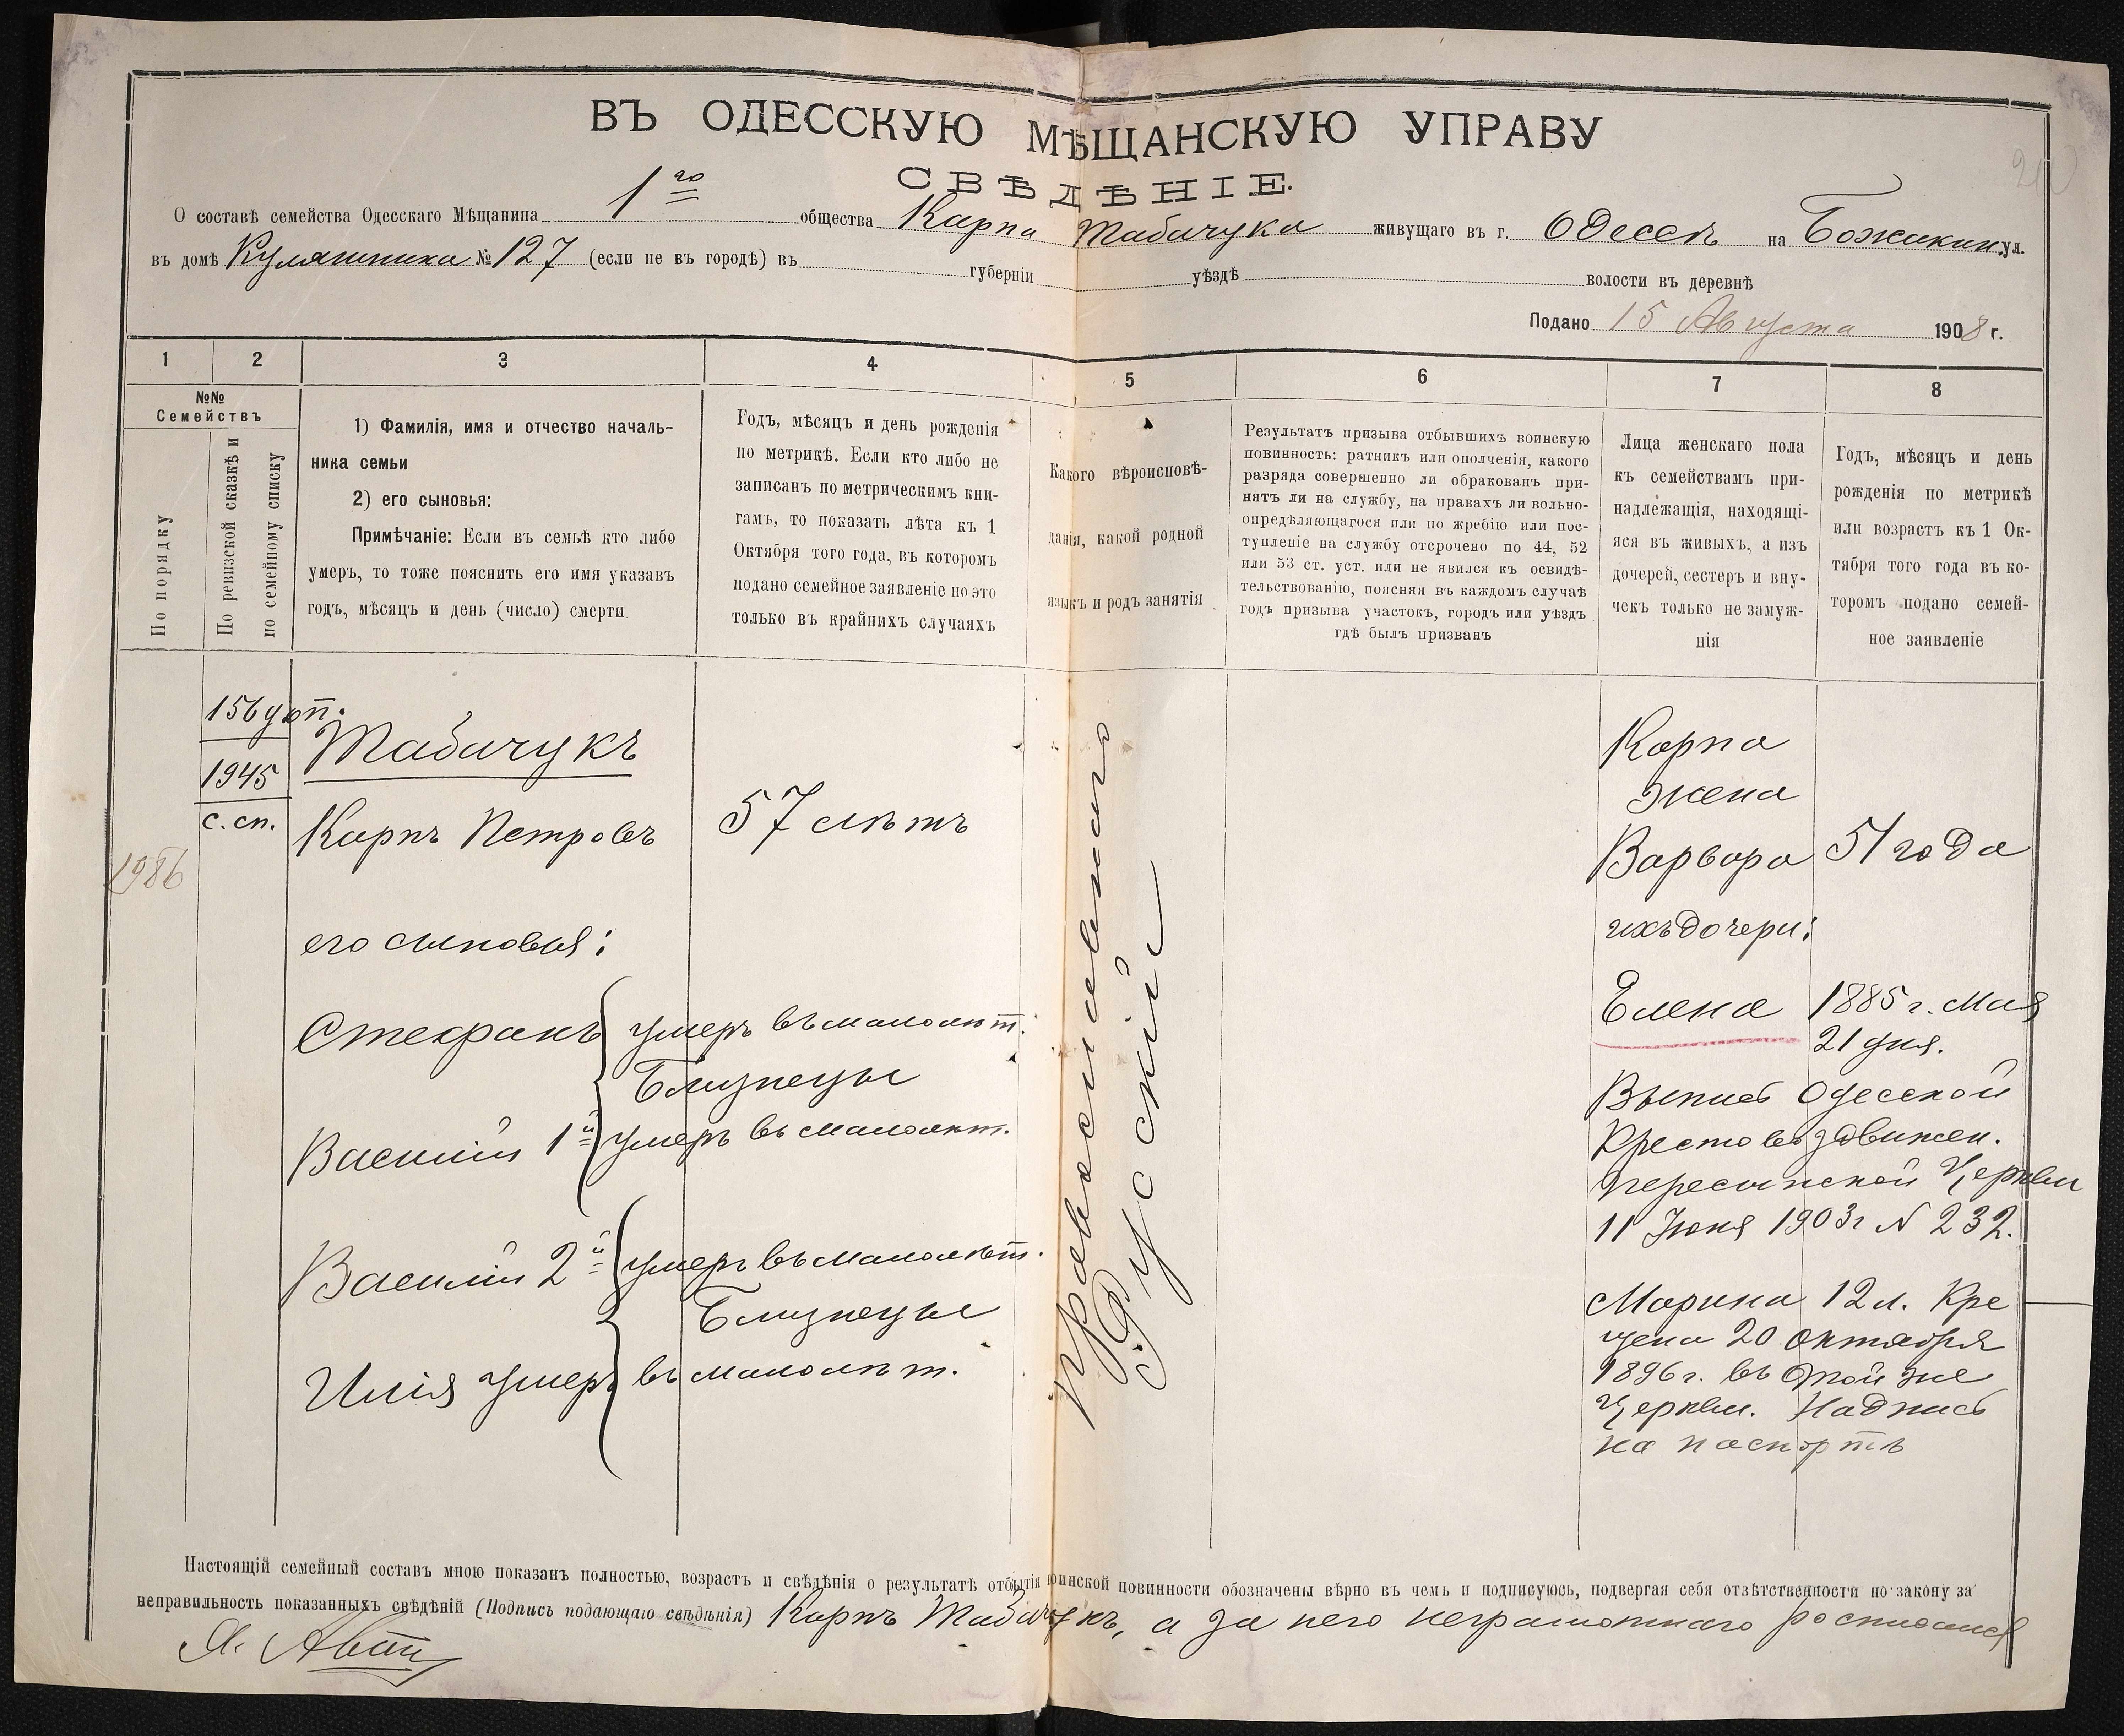 ВЪ ОДЕССКУЮ МѢЩАНСКУЮ УПРАВУ
СВѢДѢНІЕ.
О составѣ семейства Одесскаго Мѣщанина 1го общества Карпа Табачука живущаго въ г. Одессѣ на Божакин ул.
въ домѣ Куляшника № 127 (если не въ городѣ) въ губерніи уѣздѣ волости въ деревнѣ
Подано 15 Августа 1908 г.
1 2 3 4 5 6 7 8
№№
Семействъ
По порядку
По ревизской сказкѣ и
по семейному списку
1) Фамилія, имя и отчество началь-
ника семьи
2) его сыновья:
Примѣчаніе: Если въ семьѣ кто либо
умеръ, то тоже пояснить его имя указавъ
годъ, мѣсяцъ и день (число) смерти.
Годъ, мѣсяцъ и день рожденія
по метрикѣ. Если кто либо не
записанъ по метрическимъ кни-
гамъ, то показать лѣта къ 1
Октября того года, въ которомъ
подано семейное заявленіе но это
только въ крайнихъ случаяхъ
Какого вѣроисповѣ-
данія, какой родной
языкъ и родъ занятія
Результатъ призыва отбывшихъ воинскую
повинность: ратникъ или ополченія, какого
разряда совершенно ли обракованъ при-
нятъ ли на службу, на правахъ ли вольно-
опредѣляющагося или по жребію или пос-
тупленіе на службу отсрочено по 44, 52
или 53 ст. уст. или не явился къ освидѣ-
тельствованію, поясняя въ каждомъ случаѣ
годъ призыва участокъ, городъ или уѣздъ
гдѣ былъ призванъ
Лица женскаго пола
къ семействамъ при-
надлежащія, находящі-
яся въ живыхъ, а изъ
дочерей, сестеръ и вну-
чекъ только не замуж-
нія
Годъ, мѣсяцъ и день
рожденія по метрикѣ
или возрастъ къ 1 Ок-
тября того года въ ко-
торомъ подано семей-
ное заявленіе
1986
156 доп.
1945
с. сп.
Табачукъ
Карпъ Петровъ 57 лѣтъ
его сыновья:
Стефанъ умеръ въ малолѣт.
Близнецы
Василій 1й умеръ въ малолѣт.
Василій 2й умеръ въ малолѣт.
Близнецы
Илія умеръ въ малолѣт.
Православнаго
Русскій
Карпа
жена
Варвара 51 года
ихъ дочери:
Елена 1885 г. Мая
21 дня.
Выпись Одесской
Крестовоздвижен.
Пересыпской Церкви
11 Іюня 1903 г N 232.
Марина 12 л. Кре
щена 20 Октября
1896 г. въ этой же
Церкви. Надпись
на паспортѣ
Настоящій семейный составъ мною показанъ полностью, возрастъ и свѣдѣнія о результатѣ отбытія воинской повинности обозначены вѣрно въ чемъ и подписуюсь, подвергая себя отвѣтственности по закону за
неправильность показанныхъ свѣдѣній (Подпись подающаго свѣдѣнія) Карпъ Табачукъ, а за него неграмотнаго росписался